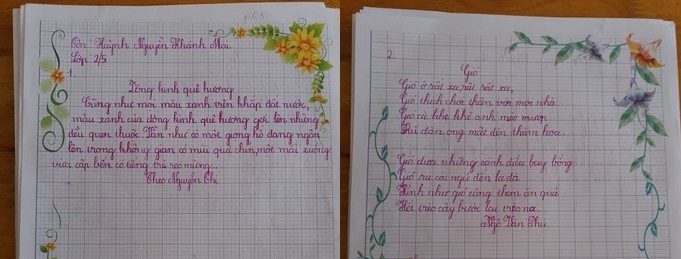 Tên: Huỳnh Nguyễn Khánh Mai
Lớp: 2/5
1.
Dòng kinh quê hương
Cũng như mọi màu xanh trên khắp đất nước,
màu xanh của dòng kinh quê hương gợi lên những
điều quen thuộc. Vẫn như có một giọng hò đang ngân
lên trong không gian có mùi quả chín, một mái xuồng
vừa cập bến có tiếng trẻ reo mừng...
Theo Nguyễn Thi
2.
Gió
Gió ở rất xa, rất rất xa,
Gió thích chơi thân với mọi nhà
Gió cù khe khẽ anh mèo mướp
Rủ đàn ong mật đến thăm hoa.
Gió đưa những cánh diều bay bổng
Gió ru cái ngủ đến la đà
Hình như gió cũng thèm ăn quả
Hết trèo cây bưởi lại trèo na...
Ngô Văn Phú